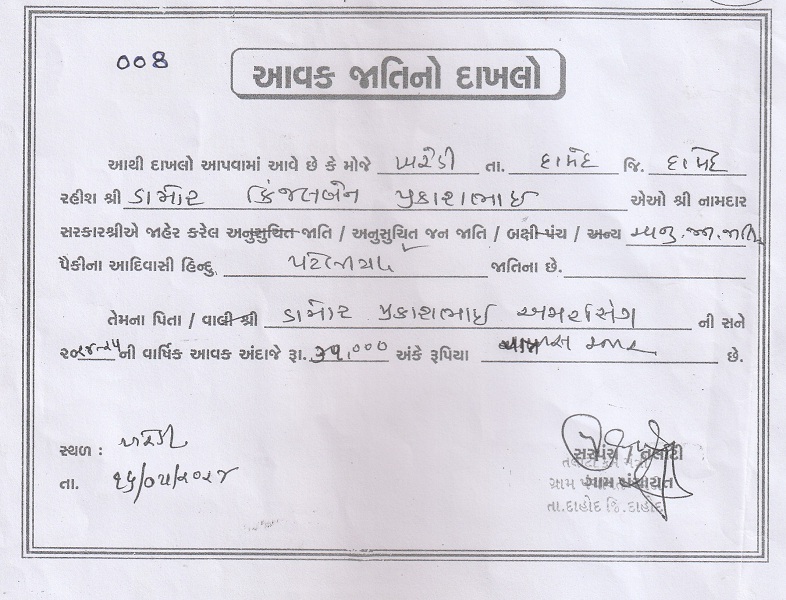 008
આવક જાતિનો દાખલો
આથી દાખલો આપવામાં આવે છે કે મોજે ખરેડી તા. દાહોદ જિ. દાહોદ
રહીશ શ્રી ડામોર કિંજલબેન પ્રકાશભાઇ એઓ શ્રી નામદાર
સરકારશ્રીએ જાહેર કરેલ અનુસુચિત જાતિ / અનુસુચિત જન જાતિ / બક્ષી પંચ / અન્ય અનુ.જ.જાતિ
પૈકીના આદિવાસી હિન્દુ પટેલીયા જાતિના છે.
તેમના પિતા / વાલી શ્રી ડામોર પ્રકાશભાઇ અમરસિંગ ની સને
૨૦૨૪-૨૫ની વાર્ષિક આવક અંદાજે રૂા. અંકે રૂપિયા હજાર છે.
સ્થળ : ખરેડી
તા. ૧૬/૦૫/૨૦૨૪
સરપંચ / તલાટી
ગ્રામ પંચાયત
તા.દાહોદ જિ.દાહોદ